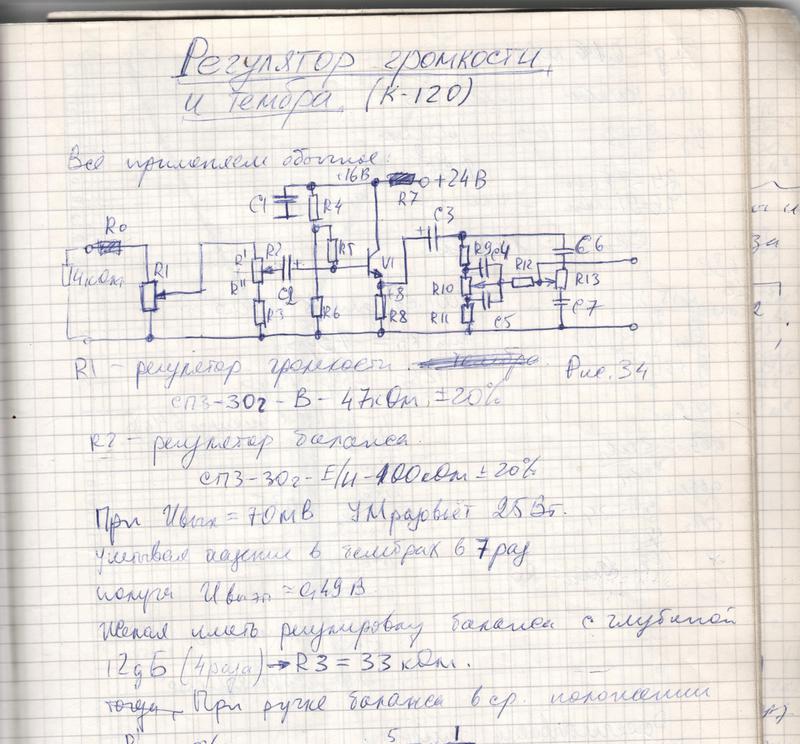 Регулятор громкости
и тембра (К-120)
Всё применяем обычное:
16В
+24В
C1
R4
R7
C3
R0
R1
R2
R'
R''
R5
V1
R9
C4
C6
47кОм
C2
R12
R10
R13
R3
R6
+8
R8
R11
C5
C7
R1 – регулятор громкости тембра Рис. 34
СП3-30г - В - 47кОм ±20%
R2 – регулятор баланса
СП3-30г - Е/И - 100кОм ± 20%
При Uвых = 70мВ УМ разовьёт 25Вт.
учитывая падение в тембрах в 7 раз
получи Uвых = 0,49 В
Желая иметь регулировку баланса с глубиной
12дБ (4 раза) → R3 = 33 кОм.
тогда При ручке баланса в ср. положении
R'
5
1
за
2